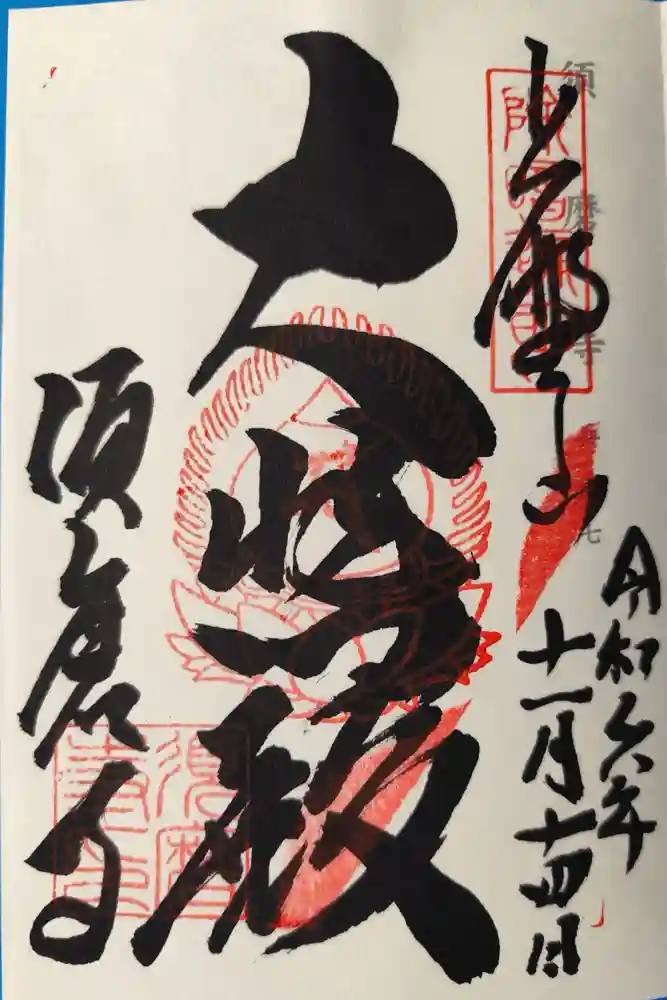 上野山
須磨寺
令和六年
十一月十四日
大悲殿
須磨寺